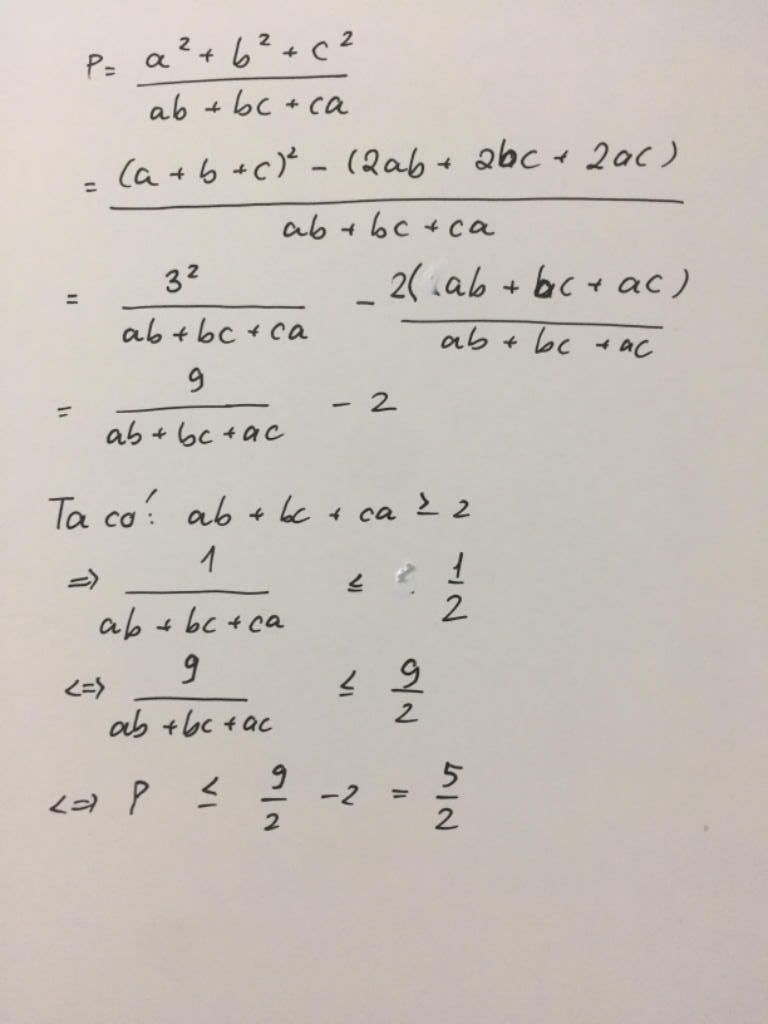 P = \frac{a^2 + b^2 + c^2}{ab + bc + ca}
= \frac{(a + b + c)^2 - (2ab + 2bc + 2ac)}{ab + bc + ca}
= \frac{3^2}{ab + bc + ca} - \frac{2(ab + bc + ac)}{ab + bc + ac}
= \frac{9}{ab + bc + ac} - 2
Ta có: ab + bc + ca ≥ 2
=> \frac{1}{ab + bc + ca} ≤ \frac{1}{2}
<=> \frac{9}{ab + bc + ac} ≤ \frac{9}{2}
<=> P ≤ \frac{9}{2} - 2 = \frac{5}{2}